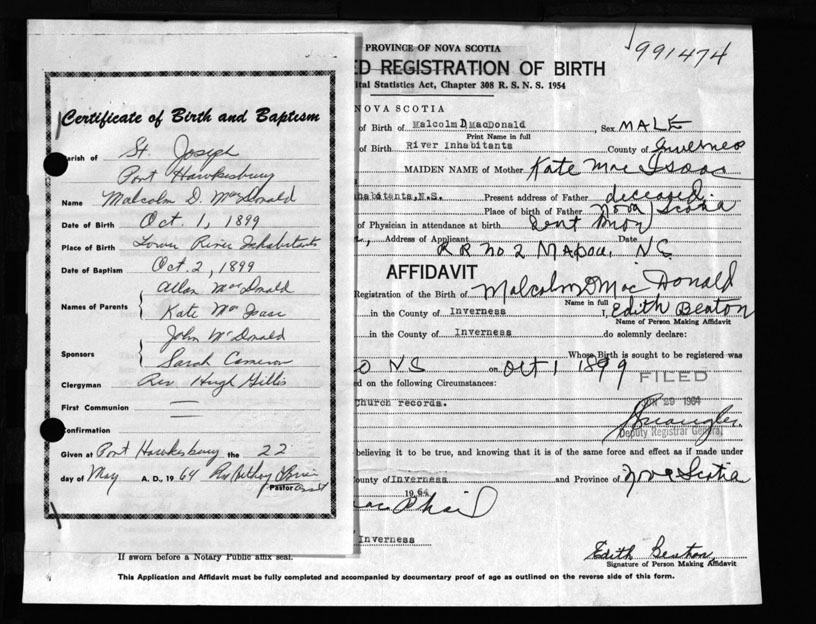 991474
PROVINCE OF NOVA SCOTIA
ED REGISTRATION OF BIRTH
ital Statistics Act, Chapter 308 R. S. N. S. 1954
NOVA SCOTIA
of Birth of Malcolm D MacDonald , Sex MALE
Print Name in full
of Birth River Inhabitants County of Inverness
MAIDEN NAME of Mother Kate Mac Isaac
habitants, N.S. Present address of Father deceased
Place of birth of Father Nova Scotia
of Physician in attendance at birth
Address of Applicant Date
RR No 2 Mabou, NS
AFFIDAVIT
Registration of the Birth of Malcolm D Mac Donald
Name in full
in the County of Inverness I, Edith Beaton
Name of Person Making Affidavit
in the County of Inverness do solemnly declare:
Whose Birth is sought to be registered was
NS on Oct 1 1899
FILED
ed on the following Circumstances:
29 1964
Church records.
Deputy Registrar General
believing it to be true, and knowing that it is of the same force and effect as if made under
ounty of Inverness and Province of Nova Scotia
1964
Inverness
If sworn before a Notary Public affix seal.
Edith Beaton
Signature of Person Making Affidavit
This Application and Affidavit must be fully completed and accompanied by documentary proof of age as outlined on the reverse side of this form.
Certificate of Birth and Baptism
arish of St. Joseph
Port Hawkesbury
Name Malcolm D. MacDonald
Date of Birth Oct. 1, 1899
Place of Birth Lower River Inhabitants
Date of Baptism Oct. 2, 1899
Names of Parents Allan MacDonald
Kate MacIsaac
Sponsors John McDonald
Sarah Cameron
Clergyman Rev Hugh Gillis
First Communion
onfirmation
Given at Port Hawkesbury the 22
day of May A. D., 1964
Pastor